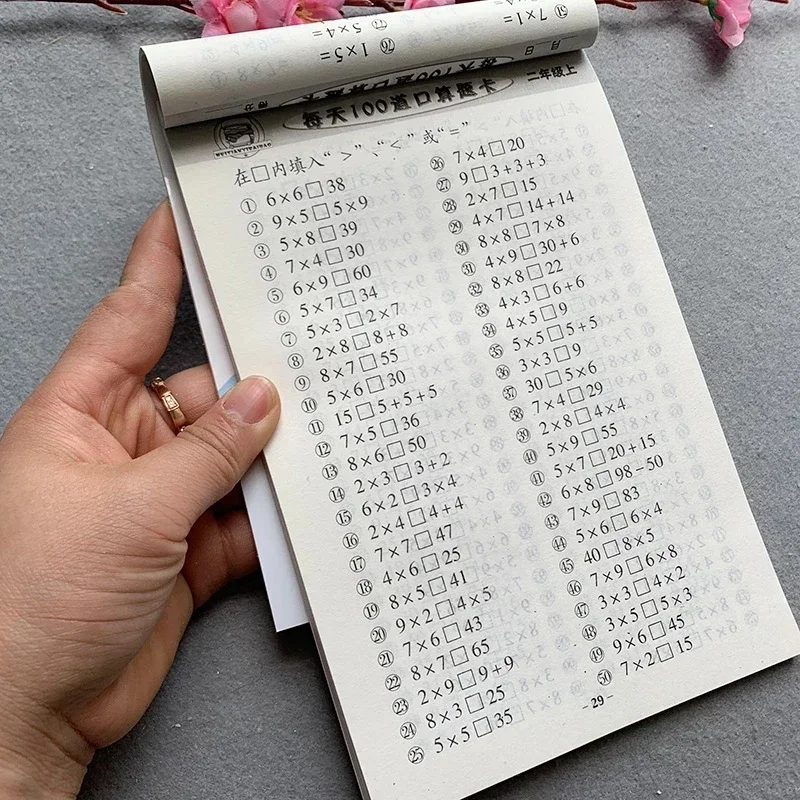 ㊿ 7×1=
㊆ 5×4=
76 1×5=
月 日
二年级上
每天100道口算题卡
得分
每天100道口算题卡
MEITIANYIBAIDAO
在□内填入“>”、“<”或“=”
① 6×6□38
② 9×5□5×9
③ 5×8□39
④ 7×4□30
⑤ 6×9□60
⑥ 5×7□34
⑦ 5×3□2×7
⑧ 2×8□8+8
⑨ 8×7□55
⑩ 5×6□30
⑪ 15□5+5+5
⑫ 7×5□36
⑬ 8×6□50
⑭ 2×3□3+2
⑮ 6×2□3×4
⑯ 2×4□4+4
⑰ 7×7□47
⑱ 4×6□25
⑲ 8×5□41
⑳ 9×2□4×5
㉑ 7×6□43
㉒ 8×7□65
㉓ 2×9□9+9
㉔ 8×3□25
㉕ 5×5□35
㉖ 7×4□20
㉗ 9□3+3+3
㉘ 2×7□15
㉙ 4×7□14+14
㉚ 8×8□7×8
㉛ 4×9□30+6
㉜ 8×8□22
㉝ 4×3□6+6
㉞ 4×5□9
㉟ 5×5□5+5
㊱ 3×3□9
㊲ 30□5×6
㊳ 7×4□29
㊴ 2×8□4×4
㊵ 5×9□55
㊶ 5×7□20+15
㊷ 6×8□98-50
㊸ 7×9□83
㊹ 5×6□6×4
㊺ 40□8×5
㊻ 7×9□6×8
㊼ 3×3□4×2
㊽ 3×5□5×3
㊾ 9×6□45
㊿ 7×2□15
-29-